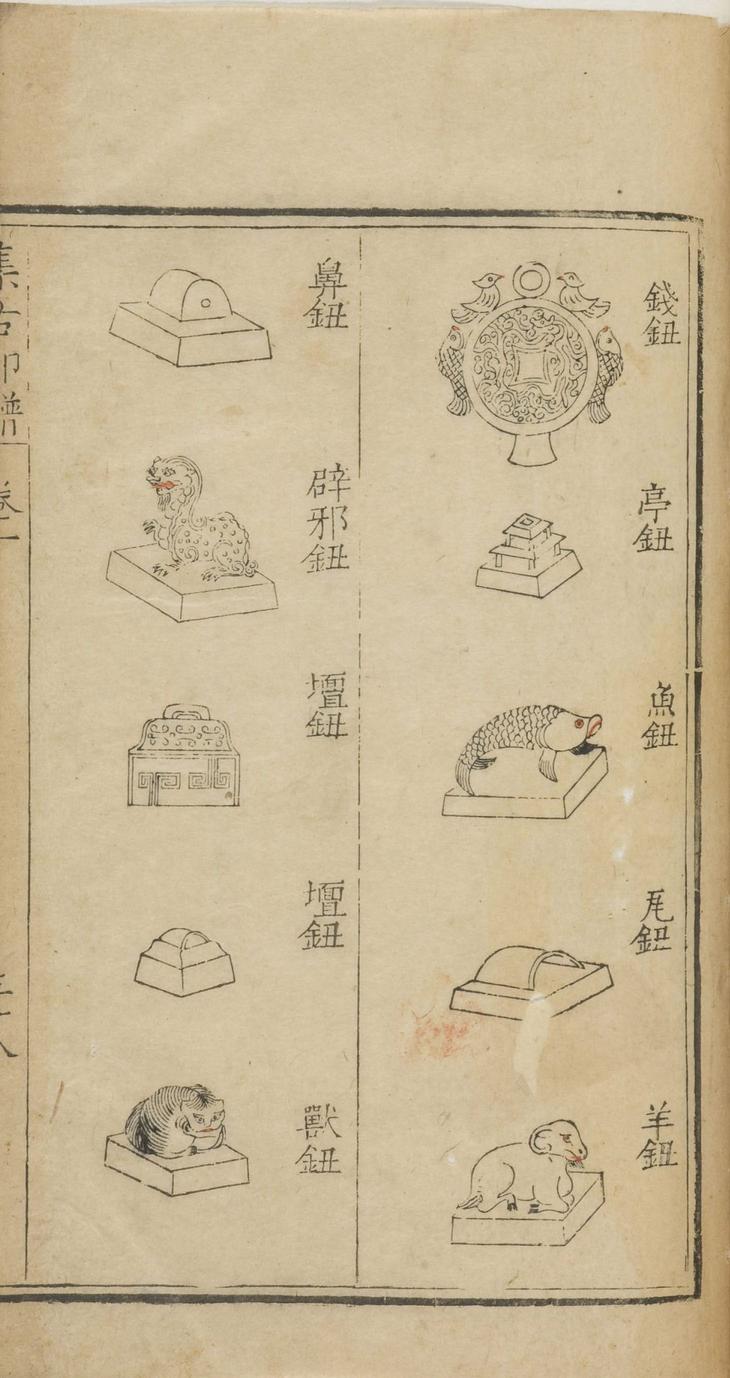 錢鈕
亭鈕
魚鈕
瓦鈕
羊鈕
鼻鈕
辟邪鈕
壇鈕
壇鈕
獸鈕
集古印譜
卷二